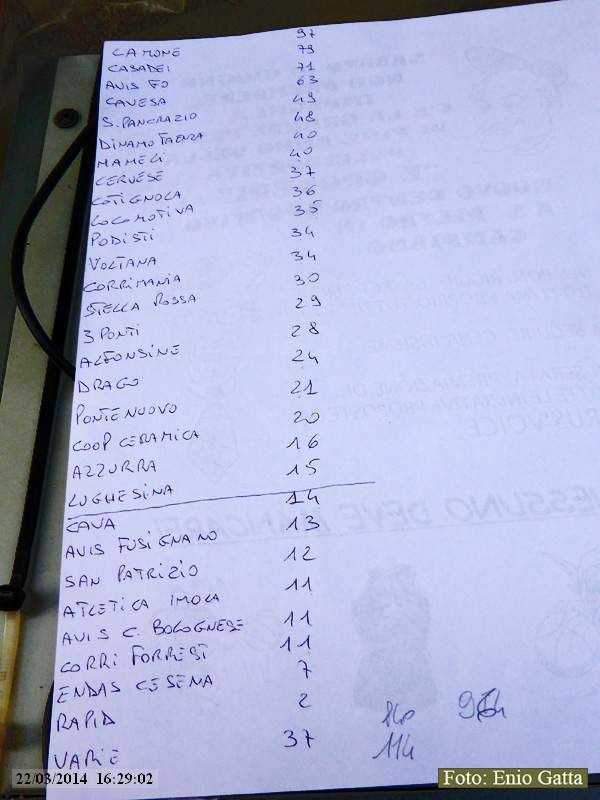 LAMONE 97
CASADEI 79
AVIS FO 71
CAVESA 63
S. PANCRAZIO 49
DINAMO FAENZA 48
MAMELI 40
CERVESE 40
COTIGNOLA 37
LOCOMOTIVA 36
PODISTI 35
VOLTANA 34
CORRIMANIA 34
STELLA ROSSA 30
3 PONTI 29
ALFONSINE 28
DRAGO 24
PONTENUOVO 21
COOP CERAMICA 20
AZZURRA 16
LUGHESINA 15
CAVA 14
AVIS FUSIGNANO 13
SAN PATRIZIO 12
ATLETICA IMOLA 11
AVIS C. BOLOGNESE 11
CORRI FORREST 11
ENDAS CESENA 7
RAPID 2
VARIE 37
840 954
114
22/03/2014 16:29:02
Foto: Enio Gatta